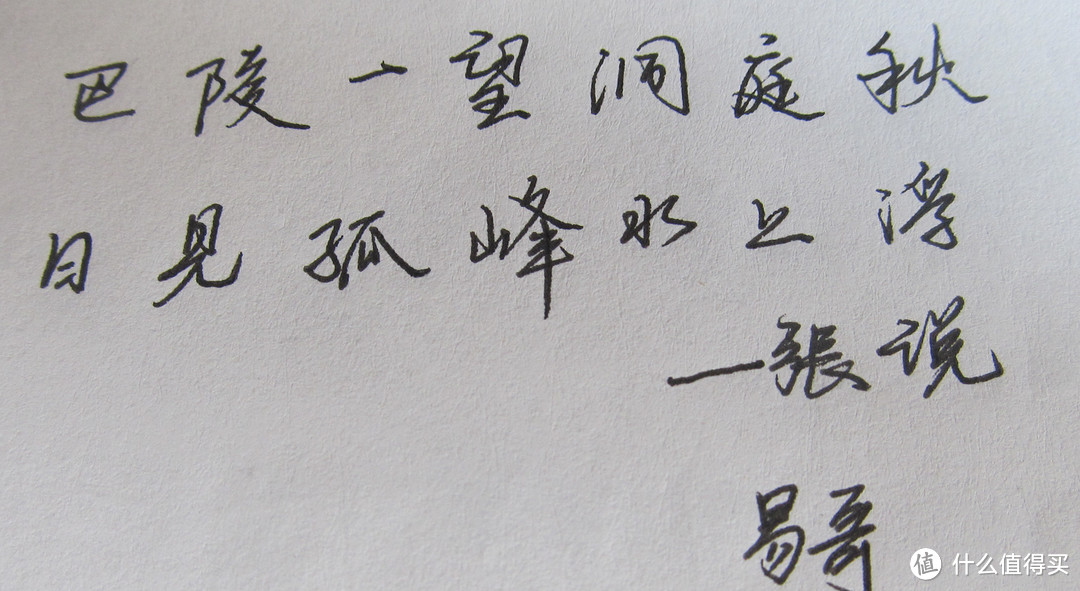 巴陵一望洞庭秋
日见孤峰水上浮
—張说
易哥
值 什么值得买